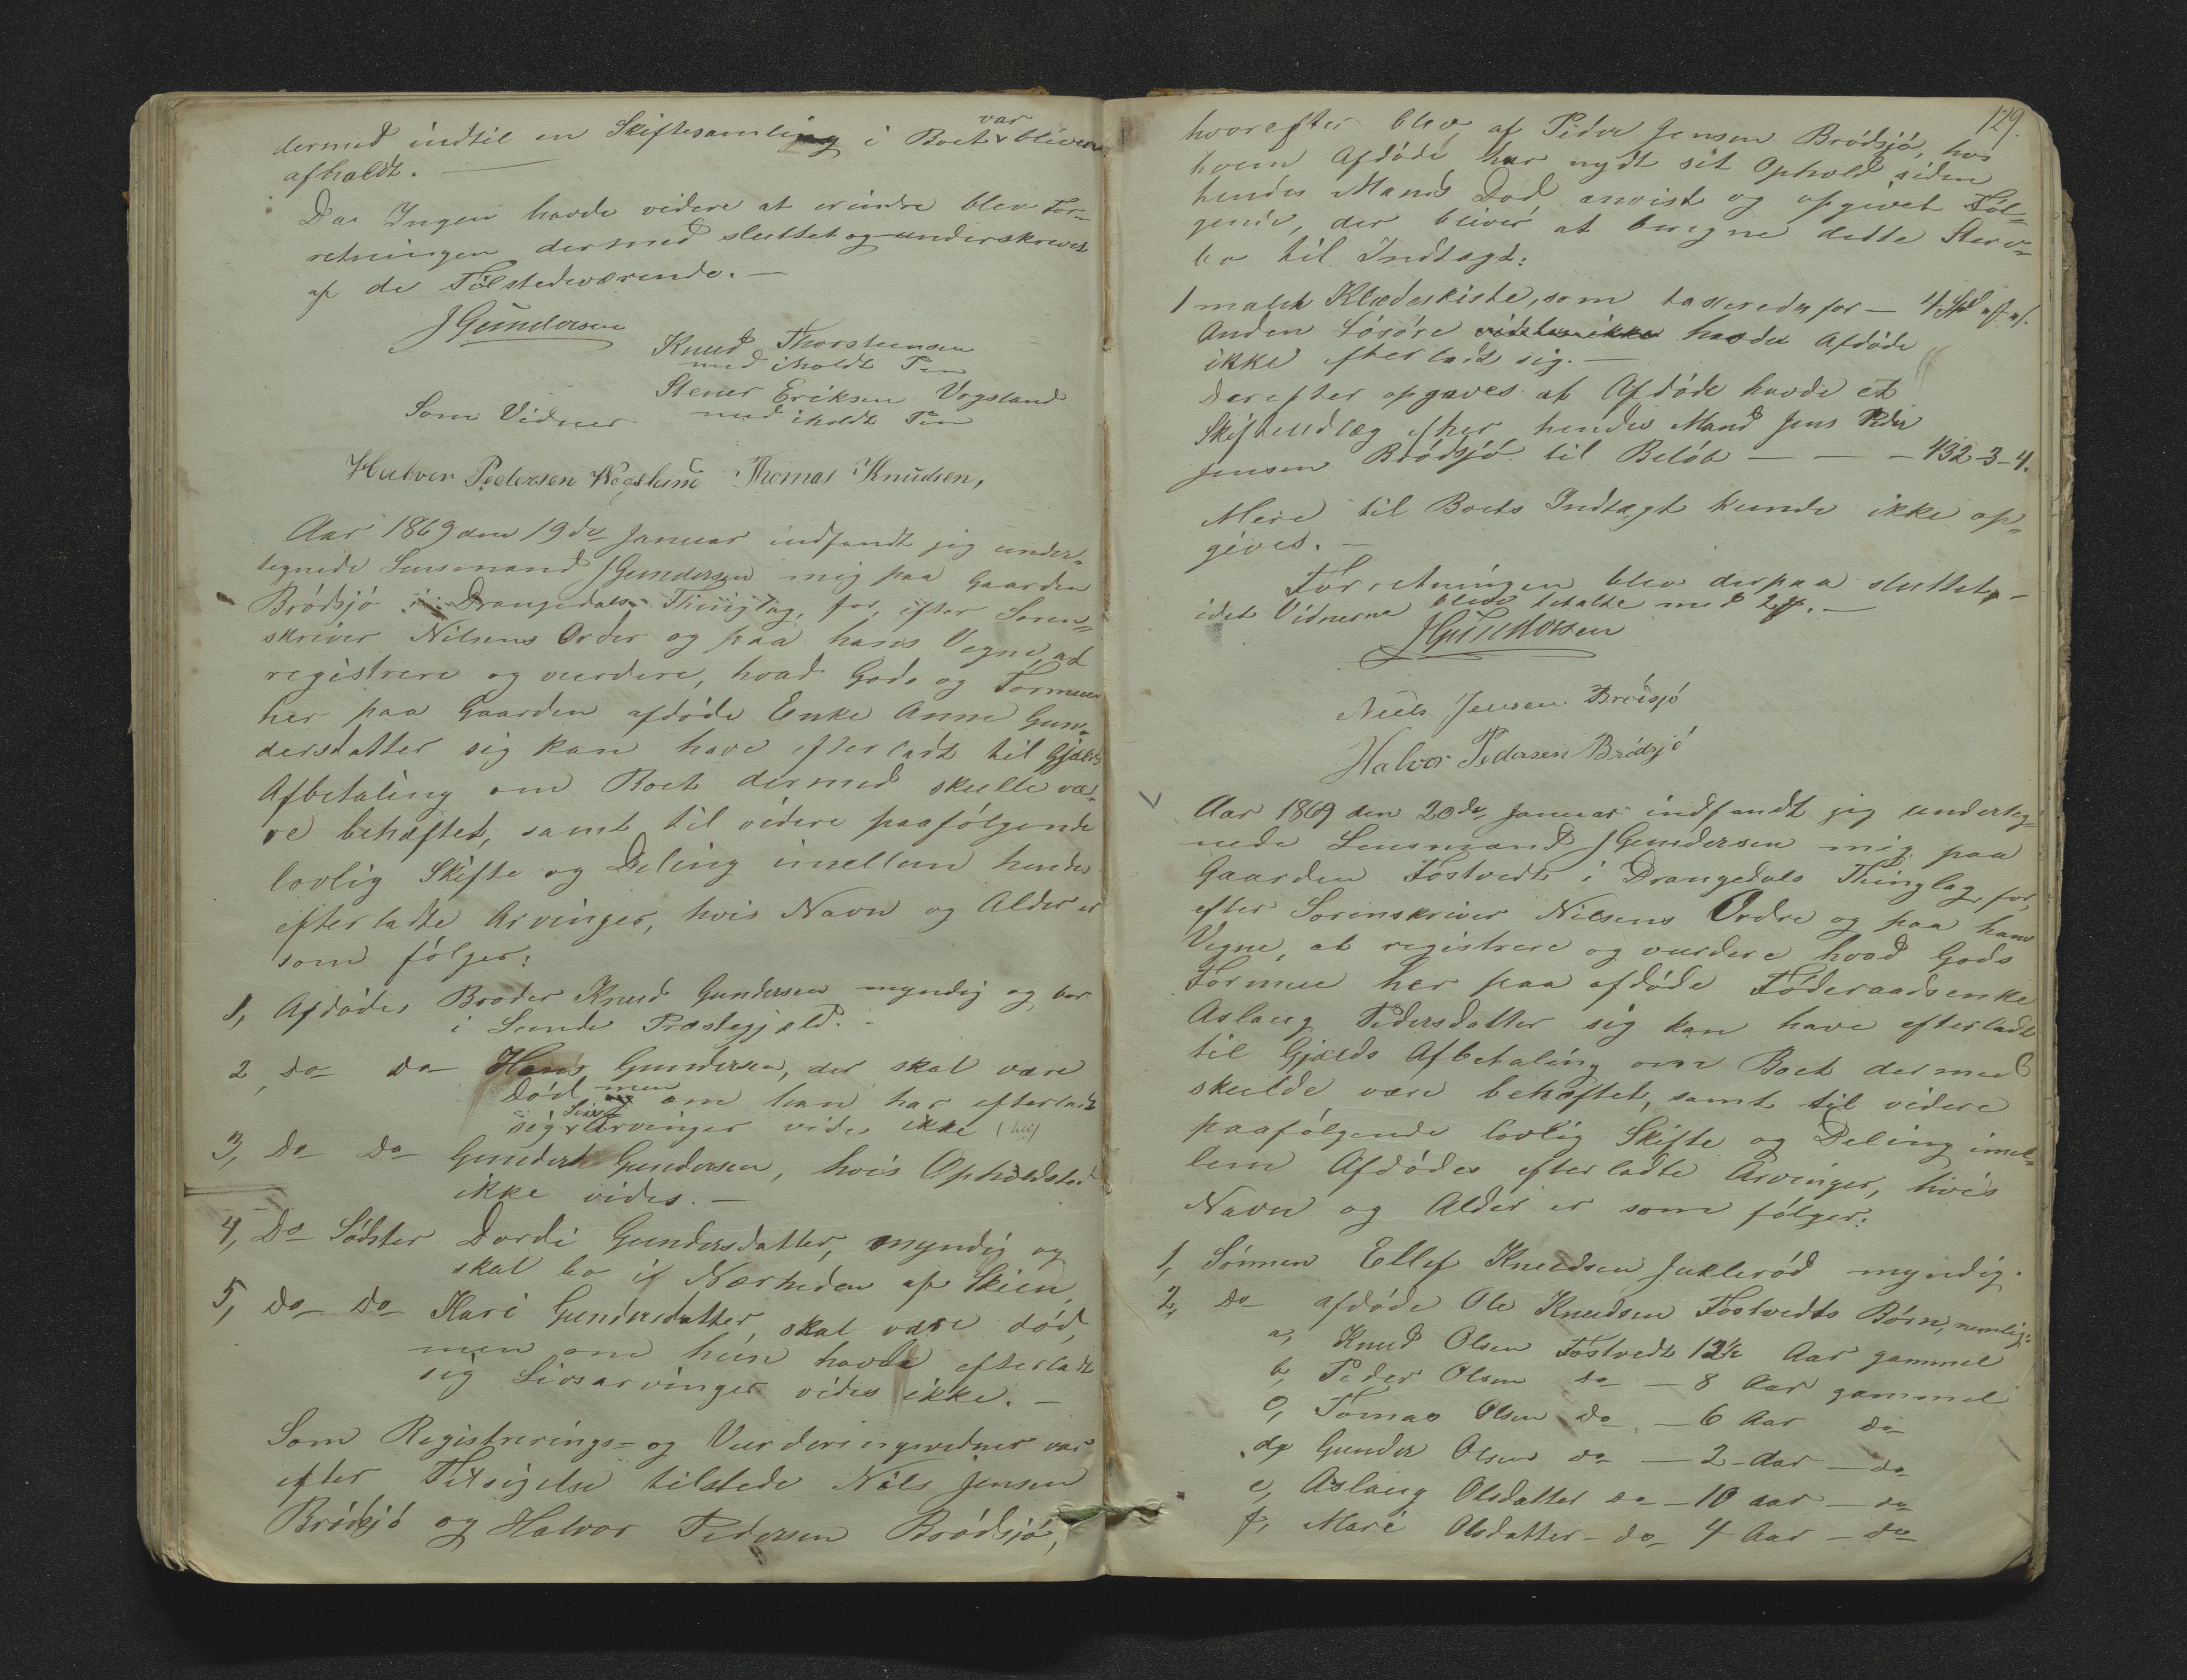 dermed indtil en Skiftesamling i Boet var bleven
afholdt. —
Da Ingen havde videre at erindre blev For-
retningen dermed sluttet og underskrevet
af de Tilstedeværende. —
JGundersen
Knud Thorsteensen
med iholdt Pen
Stener Eriksen Vogsland
med iholdt Pen
Som Vidner
Halvor Pedersen Thomas Knudsen,
Aar 1869 den 19de Januar indfandt jeg under-
tegnede Lensmand JGundersen mig paa Gaarden
Brødsjø i Drangedals Thinglag, for, efter Soren-
skriver Nilsens Order og paa hans Vegne, at
registrere og vurdere, hvad Gods og Formue
her paa Gaarden afdøde Enke Anne Gun-
dersdatter sig kan have efterladt til Gjælds
Afbetaling om Boet dermed skulle væ-
re behæftet, samt til videre paafølgende
lovlig Skifte og Deling imellem hendes
efterladte Arvinger, hvis Navn og Alder er
som følger:
1, Afdødes Broder Knud Gundersen myndig og bor
i Sende Præstegjæld. -
2, do do Hans Gundersen, der skal være
død men om han har efterladt
sig Livsarvinger vides ikke
3, Do Do Gunder Gundersen, hvis Opholdsted
ikke vides. —
4, Do Södster Dordi Gundersdatter, myndig og
skal bo i Nærheden af Skien
5, do do Kari Gundersdatter, skal være død,
men om hun havde efterladt
sig Livsarvinger vides ikke. —
Som Registrerings- og Vurderingsvidner var
efter Tilsigelse tilstede Nils Jensen
Brødsjø og Halvor Pedersen Brødsjø,
129.
hvorefter blev af Peder Jensen Brødsjø, hos
hvem Afdøde har nydt sit Ophold siden
hendes Mands Død anvist og opgivet Føl-
gende, der bliver at beregne dette Sterv-
bo til Indtægt:
1 malet Klædeskiste, som taxeredes for — 4
Anden Løsøre videstes ikke havde Afdøde
ikke efterladt sig. —
Derefter opgaves at Afdøde havde et
Skifteudlæg efter hendes Mand Jens Peder
Jensen Brødsjø til Beløb — — — 432-3-4.
Mere til Boets Indtægt kunde ikke op-
gives. —
Forretningen blev derpaa sluttet, —
idet Vidnerne bleve betalte med 2 . —
JGundersen
Niels Jensen Brødsjø
Halvor Pedersen Brødsjø
Aar 1869 den 20de Januar indfandt jeg underteg-
nede Lensmand JGundersen mig paa
Gaarden Tostvedt i Drangedals Thinglag, for,
efter Sorenskriver Nilsens Ordre og paa hans
Vegne, at registrere og vurdere hvad Gods
Formue her paa afdøde Föderaadsenke
Aslaug Pedersdatter sig kan have efterladt
til Gjælds Afbetaling om Boet dermed
skulde være behæftet, samt til videre
paafølgende lovlig Skifte og Deling imel-
lem Afdødes efterladte Arvinger, hvis
Navn og Alder er som følger:
1, Sønnen Ellef Knudsen Juklerød myndig.
2, do afdøde Ole Knudsen Tostvedts Børn, nemlig:
a, Knud Olsen Tostvedt 12½ Aar gammel
b, Peder Olsen do — 8 Aar gammel
c, Tomas Olsen do — 6 Aar do
d, Gunder Olsen do — 2 Aar — do
e, Aslaug Olsdatter do — 10 aar — do
f, Mari Olsdatter — do 4 Aar — do